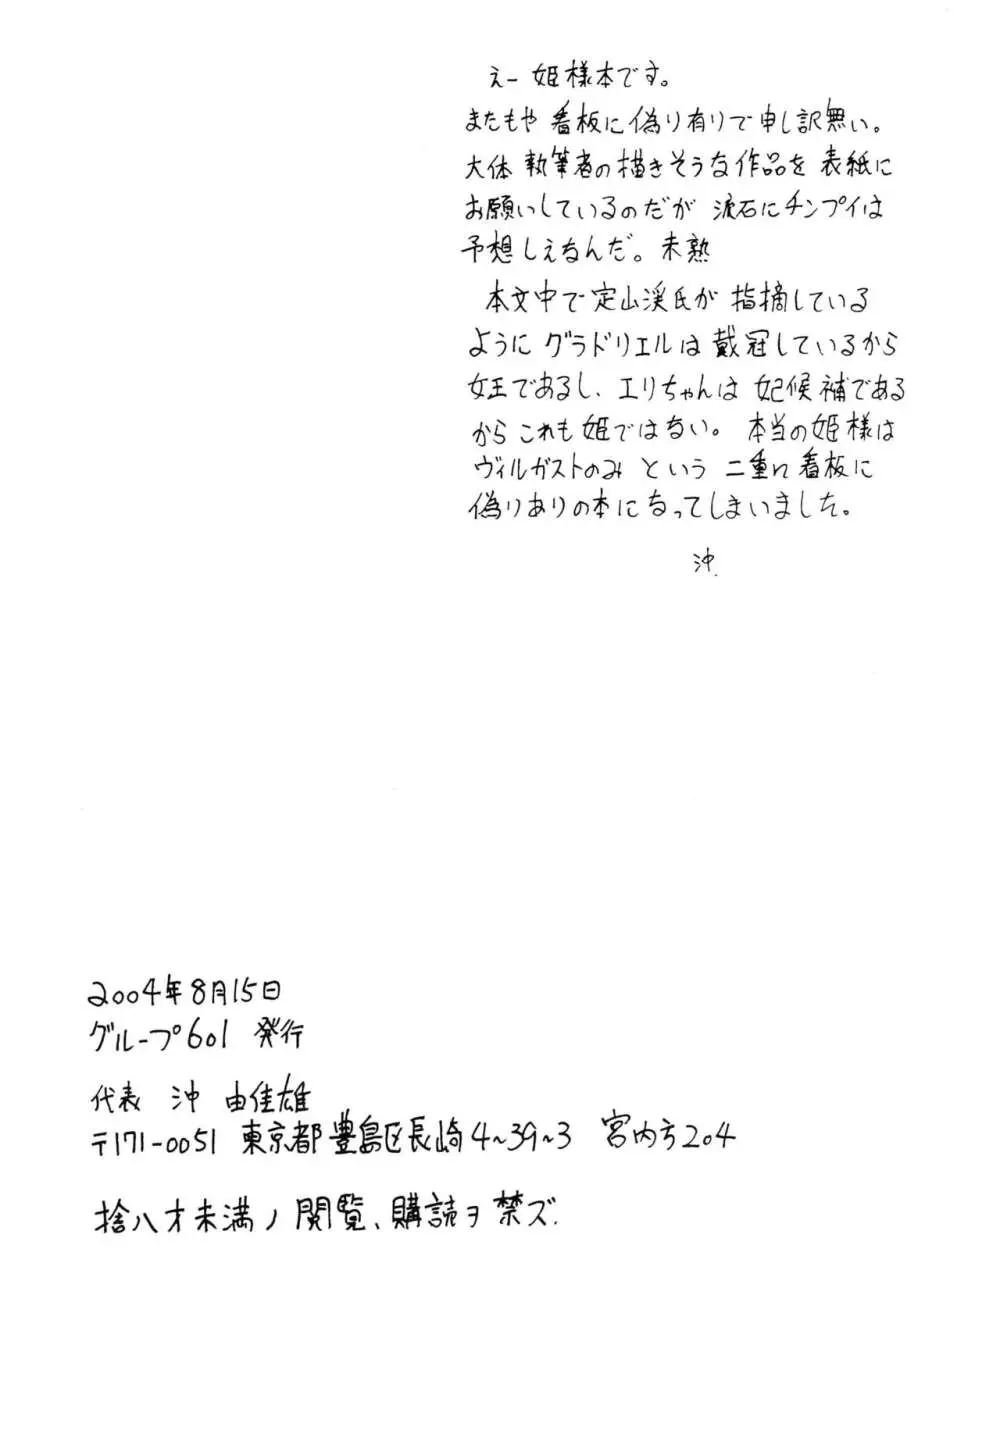 えー 姫様本です。
またもや 看板に偽り有りで申し訳無い。
大体 執筆者の描きそうな作品を 表紙に
お願いしているのだが 流石にチンプイは
予想しえなんだ。未熟
本文中で定山渓氏が 指摘している
ように グラドリエルは 戴冠しているから
女王であるし、エリちゃんは 妃候補である
から これも 姫ではない。本当の姫様は
ヴィルガストのみ という 二重に看板に
偽りありの本になってしまいました。
沖
2004年8月15日
グループ601 発行
代表 沖 由佳雄
〒171-0051 東京都豊島区長崎4~39~3 宮内方204
捨八才未満ノ閲覧、購読ヲ禁ズ.